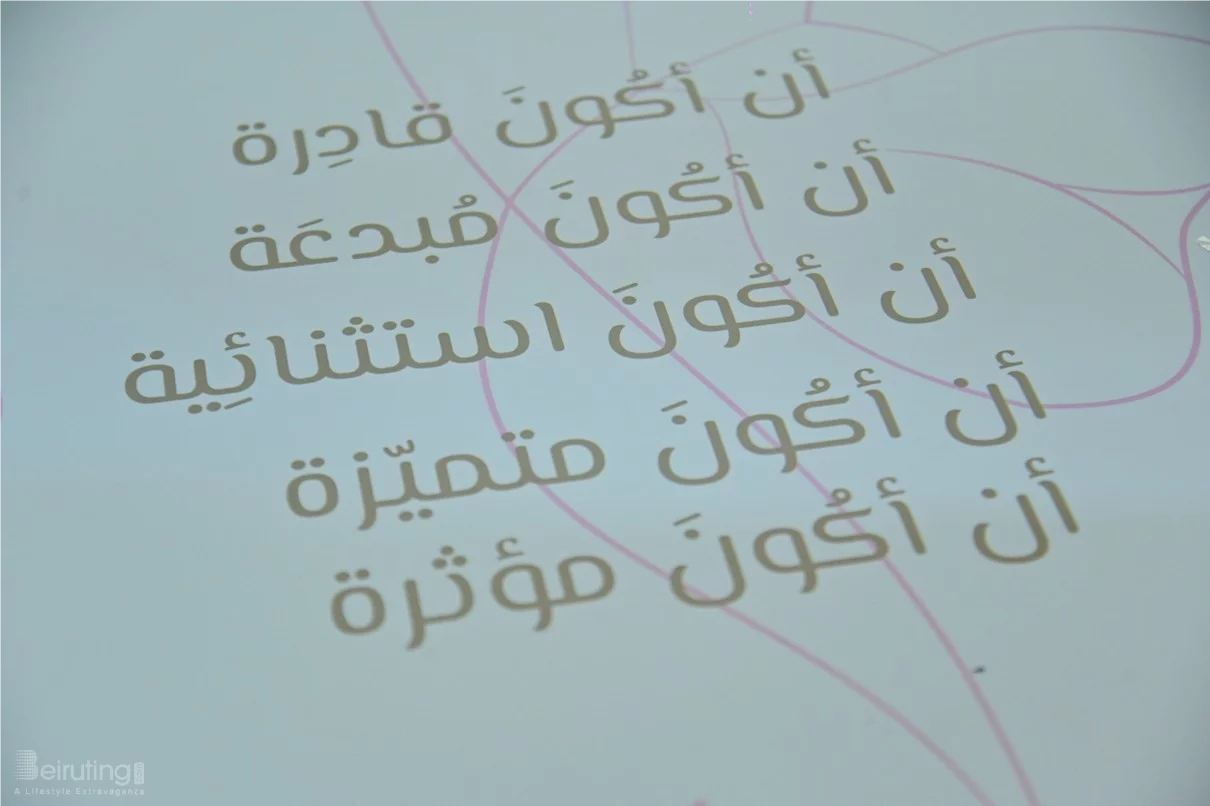 أن أكُونَ قادِرة
أن أكُونَ مُبدعَة
أن أكُونَ استثنائِية
أن أكُونَ متميّزة
أن أكُونَ مؤثرة
Beiruting
A Lifestyle Extravagance